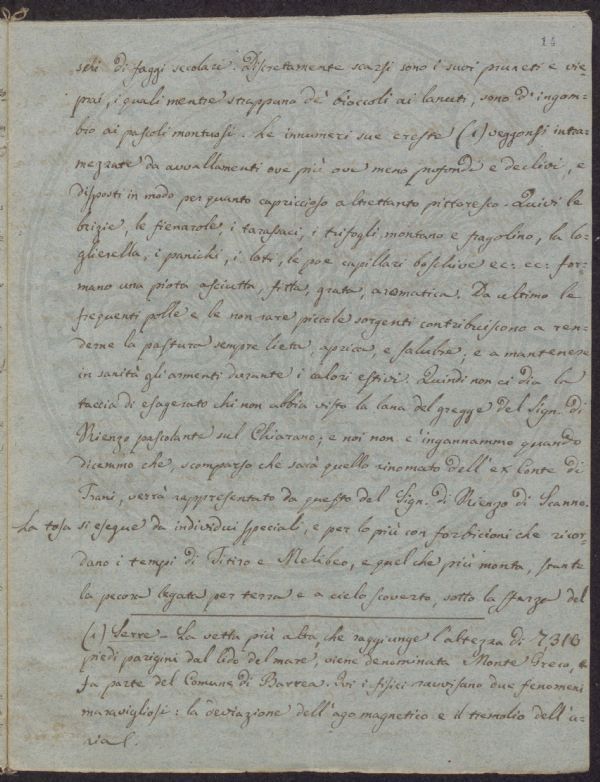 14
schi di faggi secolari. Discretamente scarsi sono i suoi pruneti e vie-
prai, i quali mentre strappano de' bioccoli ai lanuti, sono d'ingom-
bio ai pascoli montuosi. Le innumeri sue creste (1) veggonsi intra-
mezzate da avvallamenti ove più ove meno profondi e declivi, e
disposti in modo per quanto capriccioso altrettanto pittoresco. Quivi le
brizie, le fienarole, i tarassaci, i trifogli montano e fragolino, la lo-
glierella, i panichi, i loti, le poe capillari boschive ec: ec: for-
mano una piota asciutta, fitta, grata, aromatica. Da ultimo le
frequenti polle e le non rare piccole sorgenti contribuiscono a ren-
derne la pastura sempre lieta, aprica, e salubre, e a mantenere
in sanità gli armenti durante i calori estivi. Quindi non ci dia la
taccia di esagerato chi non abbia visto la lana del gregge del Sign. di
Rienzo pascolante sul Chiarano; e noi non c'ingannammo quando
dicemmo che, scomparso che sarà quello rinomato dell'ex Conte di
Trani, verrà rappresentato da questo del Sign. di Rienzo di Scanno.
La tosa si esegue da individui speciali, e per lo più con forbicioni che ricor-
dano i tempi di Titiro e Melibeo, e quel che più monta, stante
la pecora legata per terra e a cielo scoverto, sotto la sferza del
(1) Serre - La vetta più alta, che raggiunge l'altezza di 7,310
piedi parigini dal lido del mare, viene denominata Monte Greco, e
fa parte del Comune di Barrea. Qui i fisici ravvisano due fenomeni
maravigliosi: la deviazione dell'ago magnetico e il tremolio dell'a-
ria.